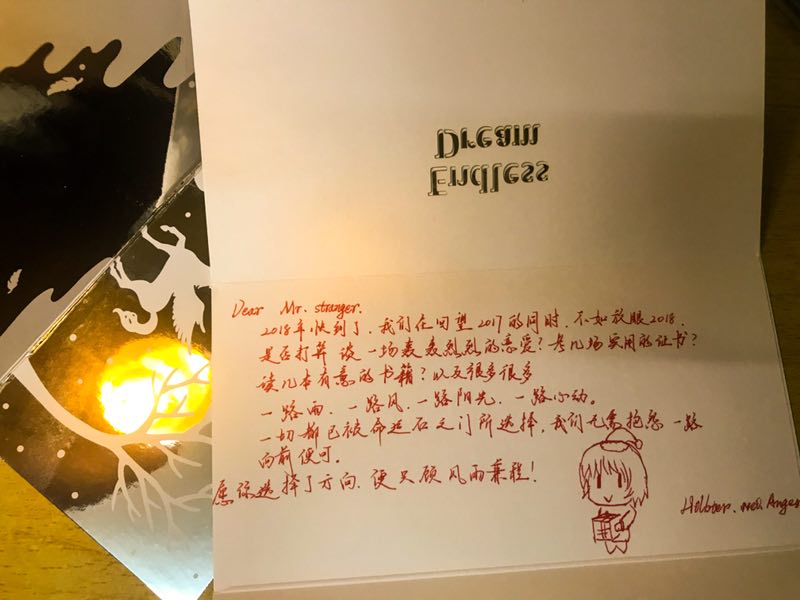 Endless
Dream
Dear Mr. stranger.
2018年快到了，我们在回望2017的同时，不如放眼2018，
是否打算谈一场轰轰烈烈的恋爱？考几场实用的证书？
读几本有意的书籍？以及很多很多
一路雨，一路风，一路阳光，一路心动。
一切都已被命运石之门所选择，我们无需抱怨一路
向前便可。
愿你选择了方向，便只顾风雨兼程！